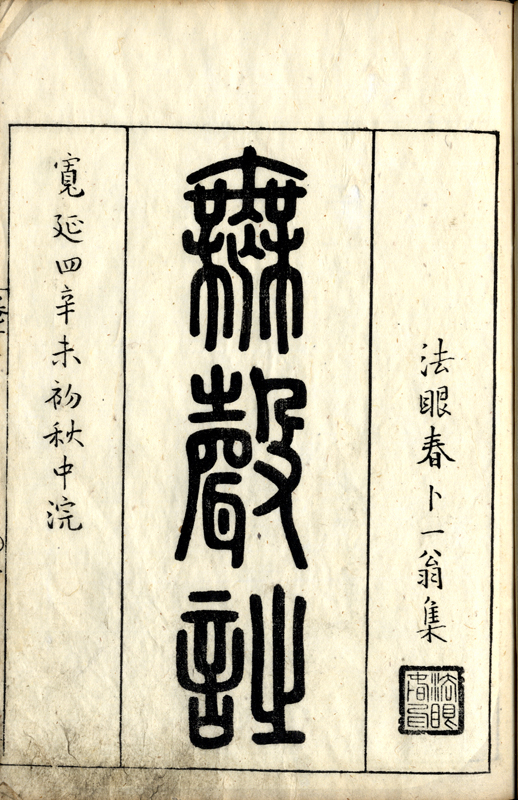 法眼春卜一翁集
法眼
無聲詩
寛延四辛未初秋中浣